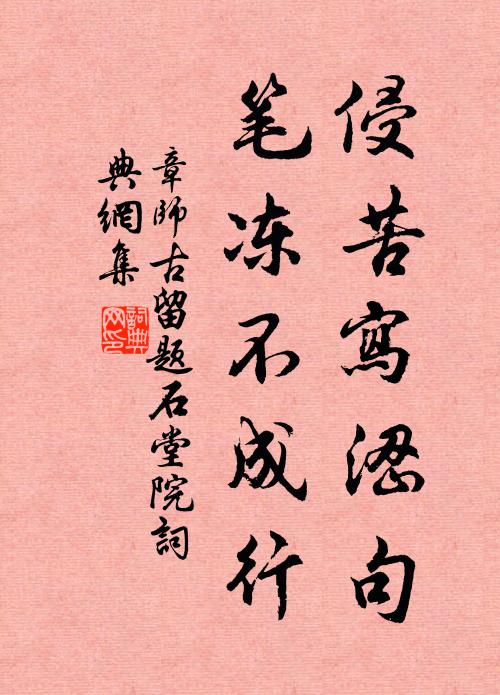 侵苦寫澀句
笔冻不成行
章師古留题石堂院詞
典網集
詞典
网印